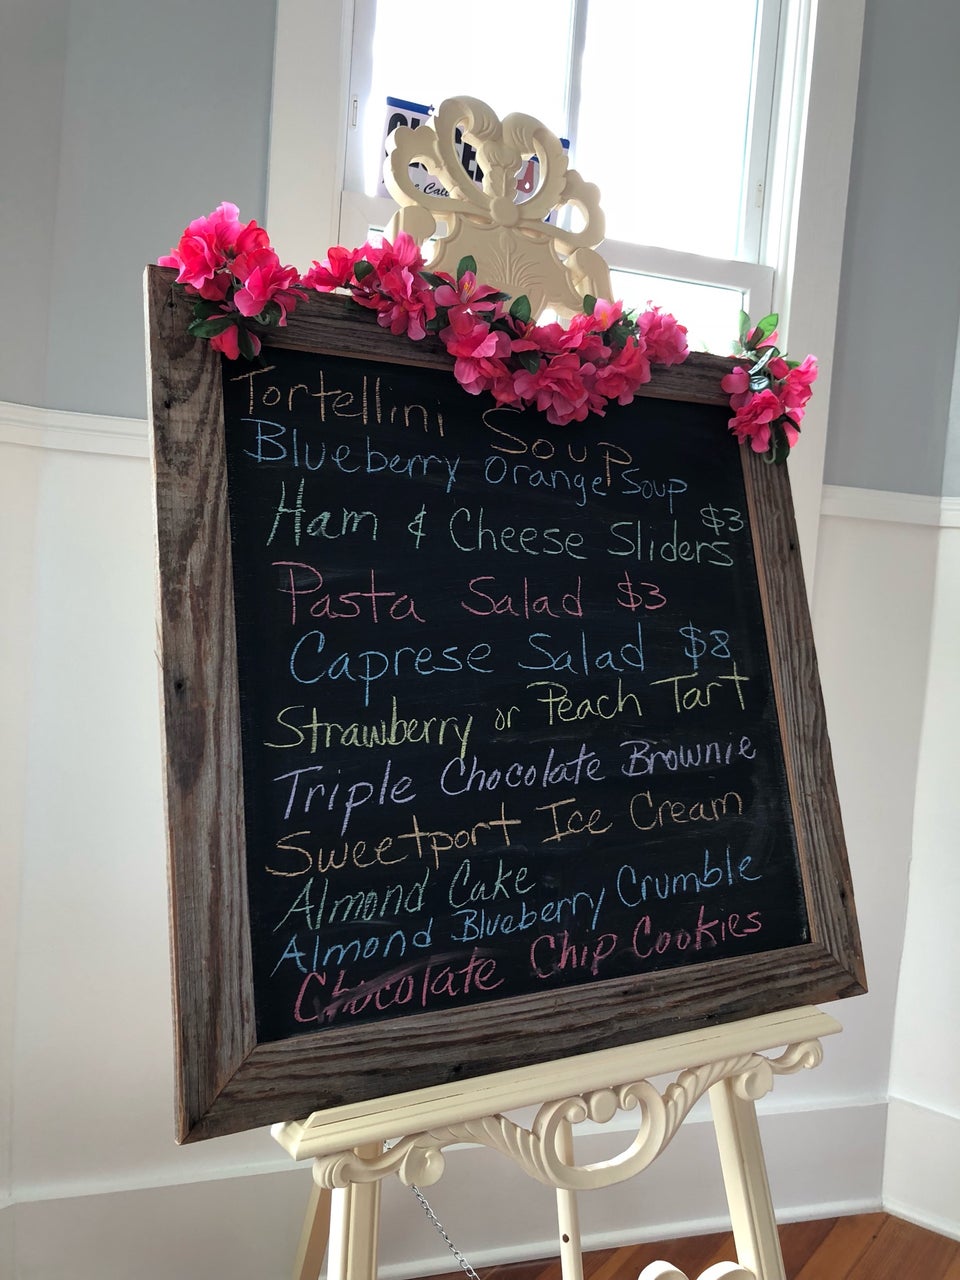 Tortellini Soup
Blueberry Orange Soup
Ham & Cheese Sliders $3
Pasta Salad $3
Caprese Salad $8
Strawberry or Peach Tart
Triple Chocolate Brownie
Sweetport Ice Cream
Almond Cake
Almond Blueberry Crumble
Chocolate Chip Cookies